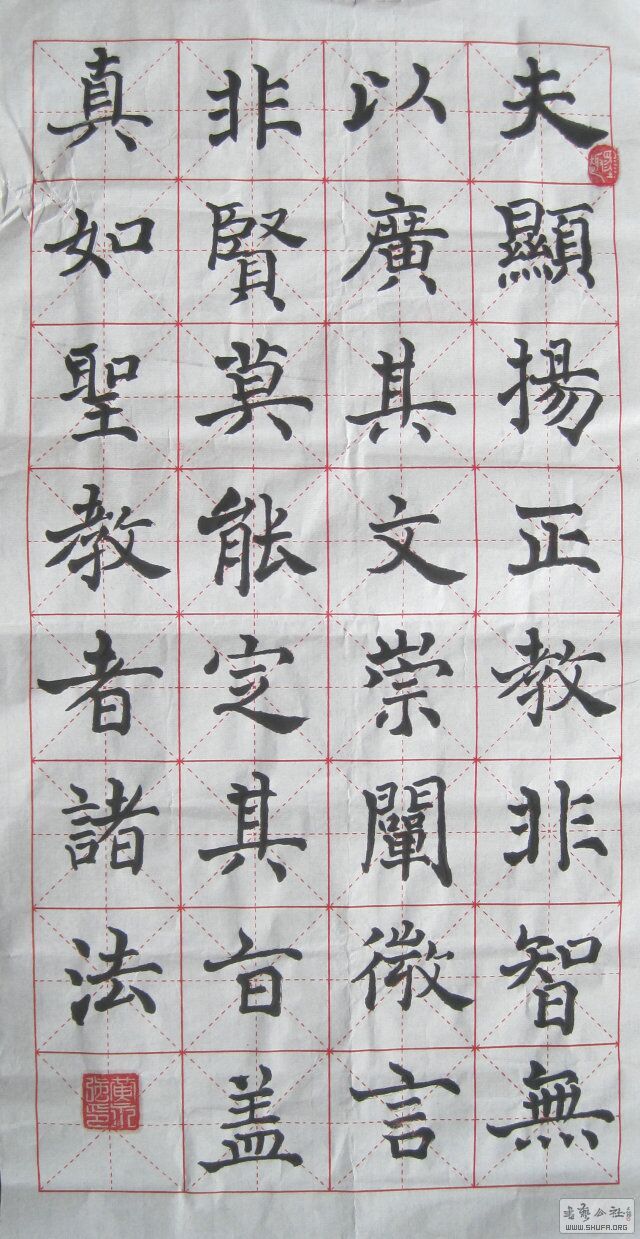 夫顯揚正教非智無
以廣其文崇闡微言
非賢莫能定其旨盖
真如聖教者諸法
書藝公社
WWW.SHUFA.ORG